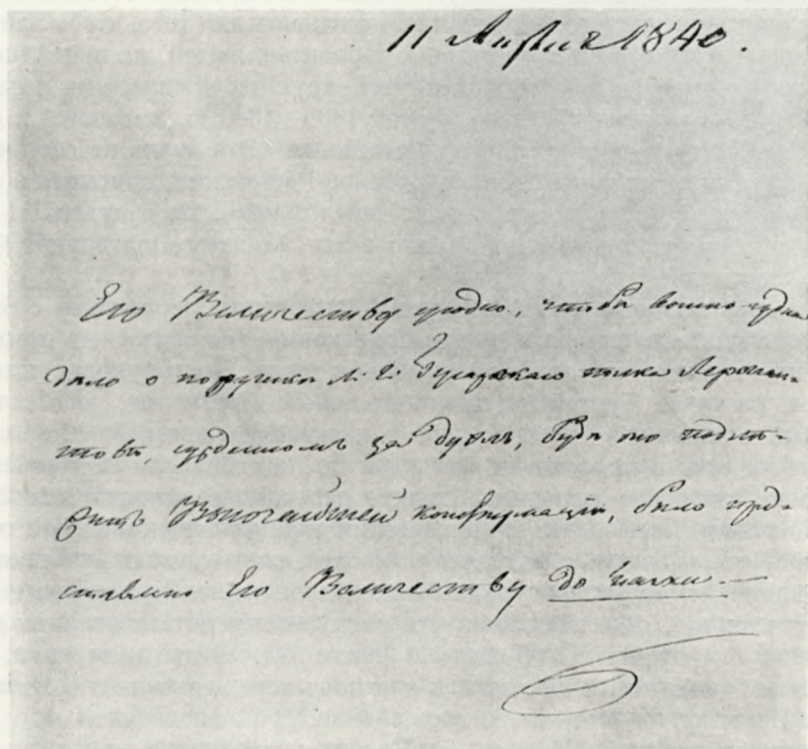 11 Апреля 1840.
Его Величеству угодно, чтобы военно-судное
дѣло о поручикѣ Л. Г. Гусарскаго полка Лермон-
товѣ, судимомъ за дуэль, буде оно подле-
житъ Высочайшей конфирмаціи, было пред-
ставлено Его Величеству до Пасхи. —